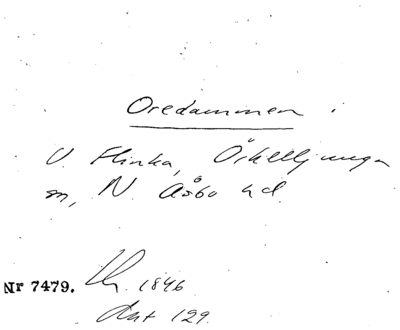 Oredammen
V. Flinka, Örkelljunga
sn, N. Åsbo hd.
Nr 7479. 1846
Akt 129.